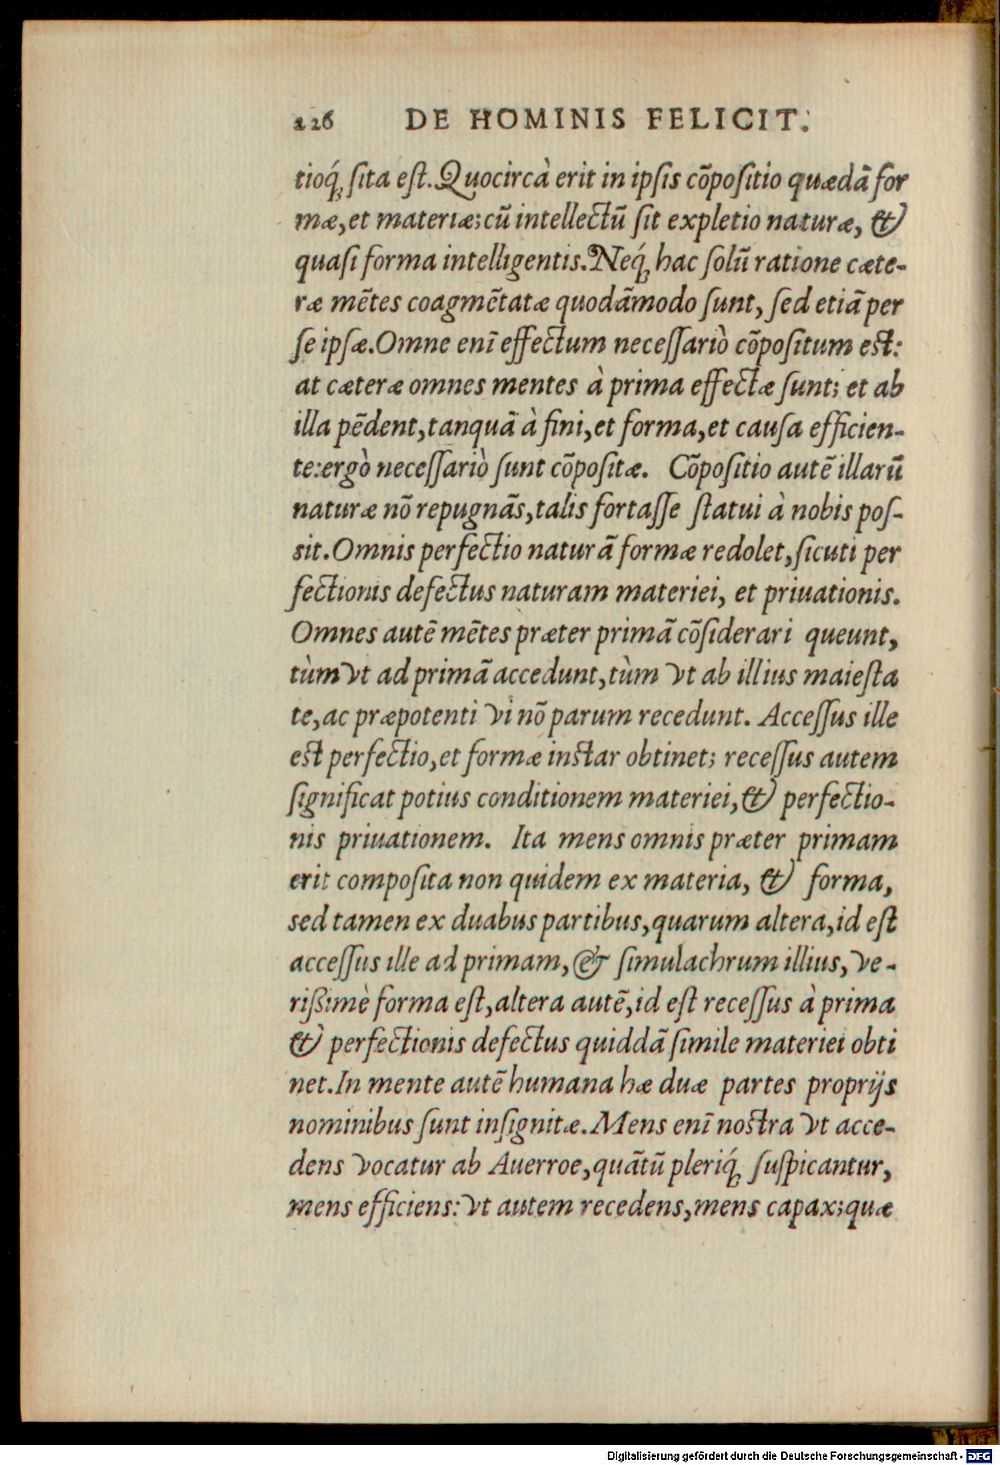 226 DE HOMINIS FELICIT.
tioq́ꝫ sita est. Quocircà erit in ipsis cõpositio quædã for
mæ, et materiæ; cũ intellectũ sit expletio naturæ, &
quasi forma intelligentis. Neq́ꝫ hac solũ ratione cæte-
ræ mẽtes coagmẽtatæ quodãmodo sunt, sed etiã per
se ipsæ. Omne enĩ effectum necessariò cõpositum est:
at cæteræ omnes mentes à prima effectæ sunt; et ab
illa pẽdent, tanquã à fini, et forma, et causa efficien-
te: ergò necessariò sunt cõpositæ. Cõpositio autẽ illarũ
naturæ nõ repugnãs, talis fortasse statui à nobis pos-
sit. Omnis perfectio naturã formæ redolet, sicuti per
fectionis defectus naturam materiei, et priuationis.
Omnes autẽ mẽtes præter primã cõsiderari queunt,
tùm vt ad primã accedunt, tùm vt ab illius maiesta
te, ac præpotenti vi nõ parum recedunt. Accessus ille
est perfectio, et formæ instar obtinet; recessus autem
significat potius conditionem materiei, & perfectio-
nis priuationem. Ita mens omnis præter primam
erit composita non quidem ex materia, & forma,
sed tamen ex duabus partibus, quarum altera, id est
accessus ille ad primam, & simulachrum illius, ve-
rißimè forma est, altera autẽ, id est recessus à prima
& perfectionis defectus quiddã simile materiei obti
net. In mente autẽ humana hæ duæ partes proprijs
nominibus sunt insignitæ. Mens enĩ nostra vt acce-
dens vocatur ab Auerroe, quãtũ pleriq́ꝫ suspicantur,
mens efficiens: vt autem recedens, mens capax; quæ
Digitalisierung gefördert durch die Deutsche Forschungsgemeinschaft - DFG